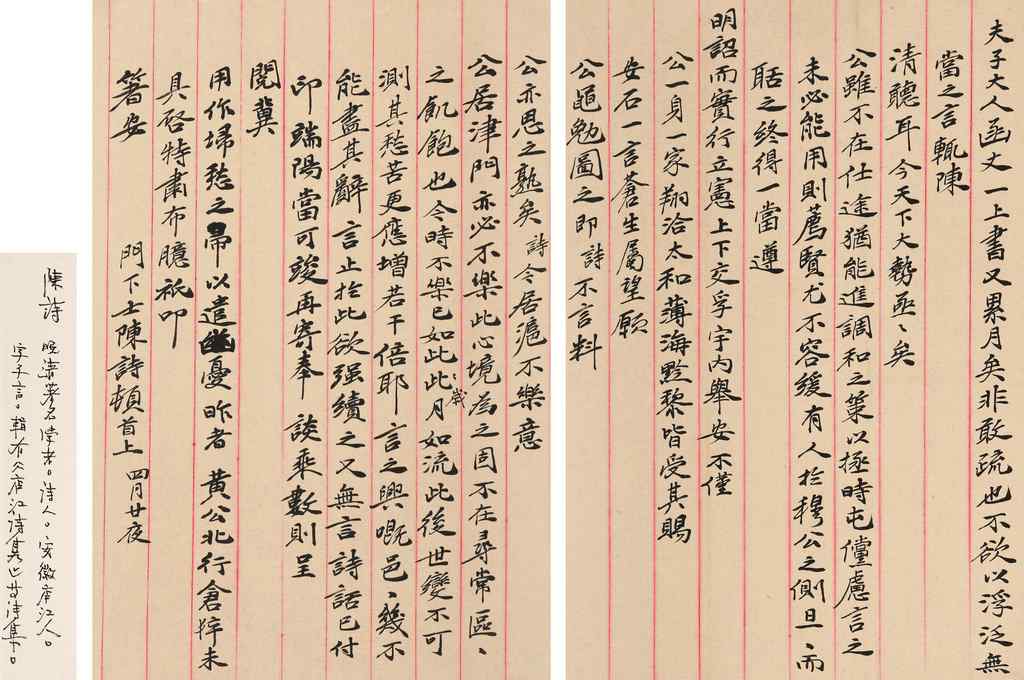 夫子大人函丈一上書又累月矣非敢疏也不欲以浮泛無
當之言輒陳
清聽耳今天下大勢亟〻矣
公雖不在仕途猶能進調和之策以拯時屯儻慮言之
未必能用則薦賢尤不容緩有人於穆公之側旦〻而
聒之終得一當遵
明詔而實行立憲上下交孚宇內舉安不僅
公一身一家翔洽太和薄海黔黎皆受其賜
安石一言蒼生屬望願
公黽勉圖之即詩不言料
公亦思之熟矣詩今居滬不樂意
公居津門亦必不樂此心境為之固不在尋常區〻
之飢飽也今時不樂已如此此〻歲月如流此後世變不可
測其愁苦更應增若干倍耶言之興嘅邑〻幾不
能盡其辭言止於此欲强續之又無言詩話已付
印端陽當可竣再寄奉談乘數則呈
閱冀
用作埽愁之帚以遣幽憂昨者黃公北行倉猝未
具啓特肅布臆祇叩
箸安
門下士陳詩頓首上四月廿夜
陳詩
晚清著名學者。詩人。安徽廬江人。
字子言。輯有《廬江詩集》